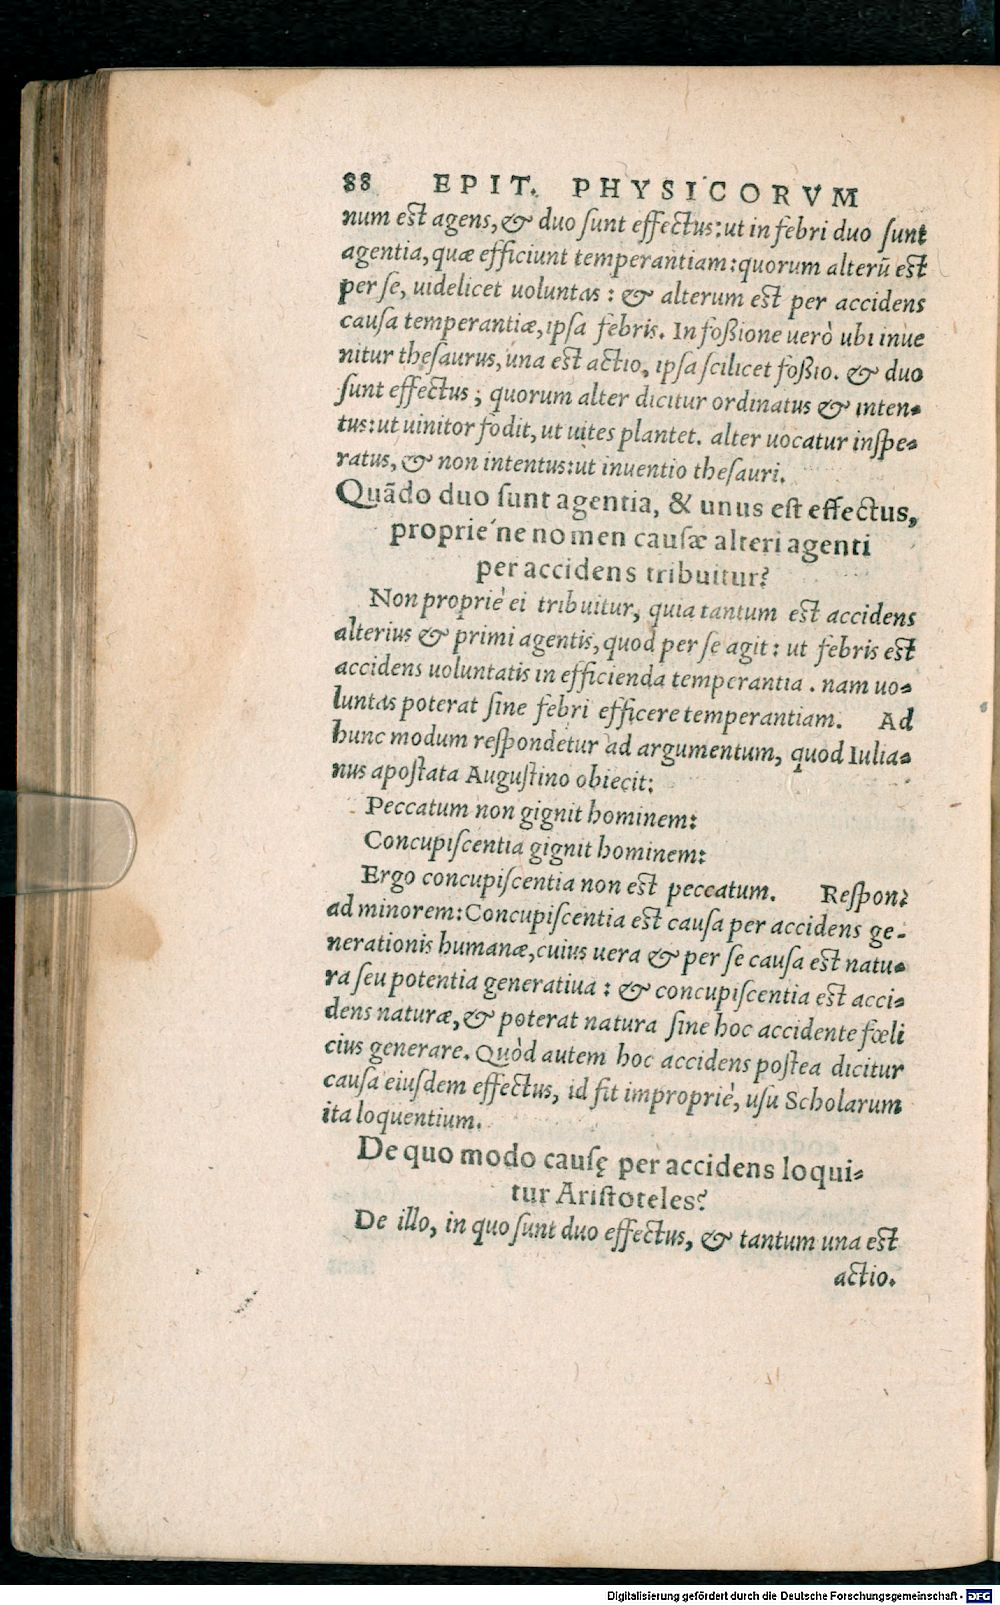 88 EPIT. PHYSICORVM
num est agens, & duo ſunt effectus: ut in febri duo ſunt
agentia, quæ efficiunt temperantiam: quorum alterū est
per ſe, uidelicet uoluntas: & alterum est per accidens
cauſa temperantiæ, ipſa febris. In foßione uerò ubi inue
nitur theſaurus, una est actio, ipſa ſcilicet foßio. & duo
ſunt effectus; quorum alter dicitur ordinatus & inten-
tus: ut uinitor fodit, ut uites plantet. alter uocatur inſpe-
ratus, & non intentus: ut inuentio theſauri.
Quãdo duo ſunt agentia, & unus eſt effectus,
proprie´ne nomen cauſæ alteri agenti
per accidens tribuitur?
Non propriè ei tribuitur, quia tantum est accidens
alterius & primi agentis, quod per ſe agit: ut febris est
accidens uoluntatis in efficienda temperantia. nam uo-
luntas poterat ſine febri efficere temperantiam. Ad
hunc modum reſpondetur ad argumentum, quòd Iulia-
nus apoſtata Auguſtino obiecit:
Peccatum non gignit hominem:
Concupiſcentia gignit hominem:
Ergo concupiſcentia non est peccatum. Reſpon:
ad minorem: Concupiſcentia est cauſa per accidens ge-
nerationis humanæ, cuius uera & per ſe cauſa est natu-
ra ſeu potentia generatiua: & concupiſcentia est acci-
dens naturæ, & poterat natura ſine hoc accidente fœli
cius generare. Quòd autem hoc accidens poſtea dicitur
cauſa eiuſdem effectus, id fit impropriè, uſu Scholarum
ita loquentium.
De quo modo cauſę per accidens loqui-
tur Ariſtoteles?
De illo, in quo ſunt duo effectus, & tantum una est
actio.
Digitalisierung gefördert durch die Deutsche Forschungsgemeinschaft - DFG